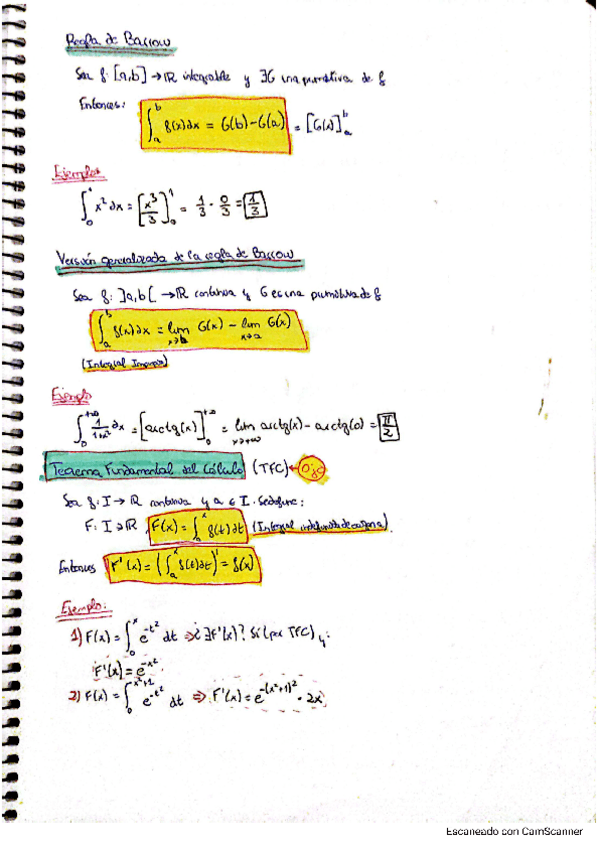 Regla de Barrow
Sea f: [a,b] → ℝ integrable y ∃G una primitiva de f
Entonces: ∫_a^b f(x)dx = G(b) - G(a) = [G(x)]_a^b
Ejemplo:
∫_0^1 x² dx = [x³/3]_0^1 = 1/3 - 0/3 = 1/3
Versión generalizada de la regla de Barrow
Sea f: ]a,b[ → ℝ continua y G es una primitiva de f
∫_a^b f(x)dx = lim_{x→b} G(x) - lim_{x→a} G(x)
(Integral Impropia)
Ejemplo
∫_0^{+∞} 1/(1+x²) dx = [arctg(x)]_0^{+∞} = lim_{x→+∞} arctg(x) - arctg(0) = π/2
Teorema Fundamental del Cálculo (TFC) ← Ojo
Sea f: I → ℝ continua y a ∈ I. Se define:
F: I → ℝ, F(x) = ∫_a^x f(t)dt (Integral indefinida de origen a).
Entonces F'(x) = (∫_a^x f(t)dt)' = f(x)
Ejemplo:
1) F(x) = ∫_0^x e^{-t²} dt ⇒ ¿∃F'(x)? Sí (por TFC) y:
F'(x) = e^{-x²}
2) F(x) = ∫_0^{x²+1} e^{-t²} dt ⇒ F'(x) = e^{-(x²+1)²} · 2x
Escaneado con CamScanner